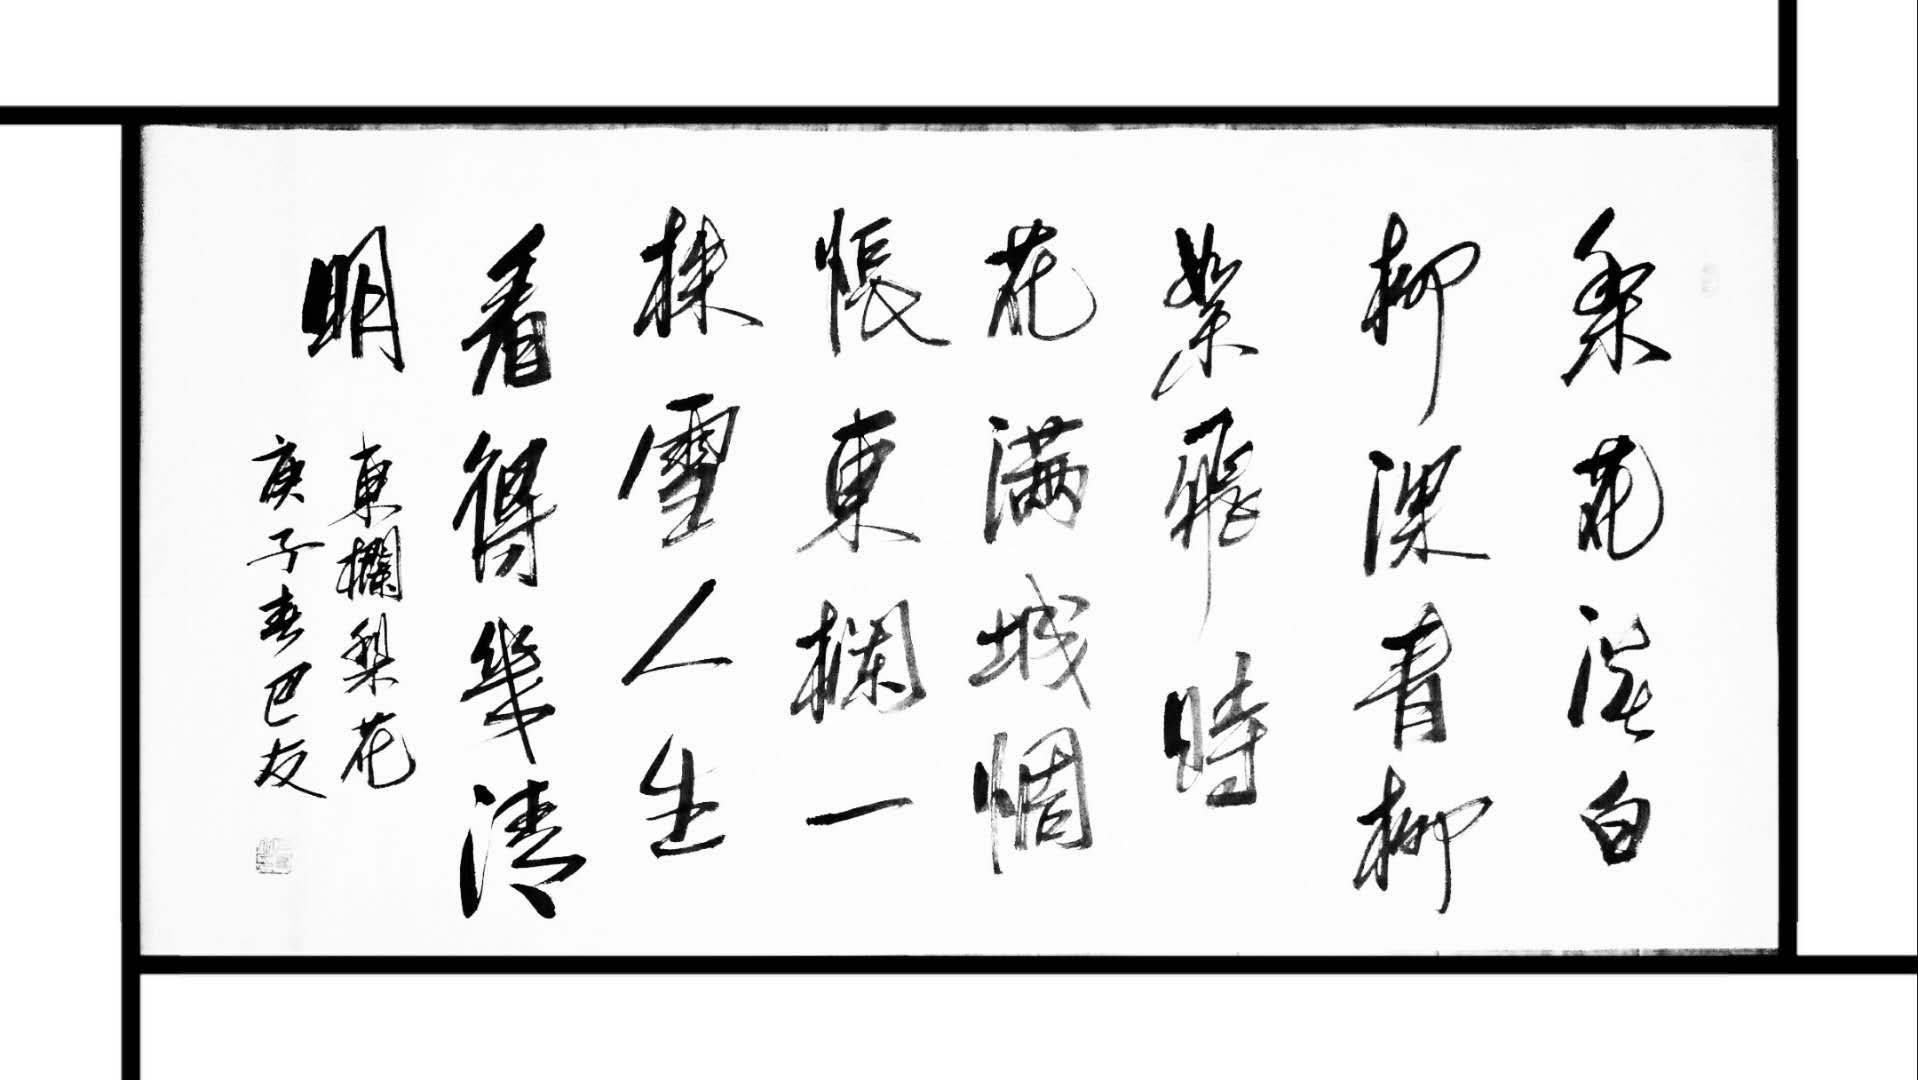 梨花淡白
柳深青柳
絮飛時
花满城惆
悵東欄一
株雪人生
看得幾清
明
東欄梨花
庚子春巴友